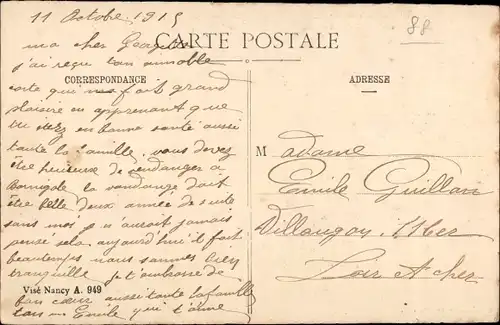 11 Octobre 1915
88
CARTE POSTALE
ma cher Georgette
j'ai reçu ton aimable
CORRESPONDANCE
ADRESSE
carte qui ma fait grand
plaisire en apprenant que
tu étez en bonne santé aussi
toute la famille vous devez
être heureuse de vendanger a
la vandange doit
être belle deux année de suite
sans moi je n'aurait jamais
pensé sela aujourd'hui il fait
beautemps nous sommes bien
tranquille je t'embrasse de
Visé Nancy A. 949
bon cœur aussi toute la famille
ton Emile qui t'aime
Madame
Emile Guillan
Loir et Cher